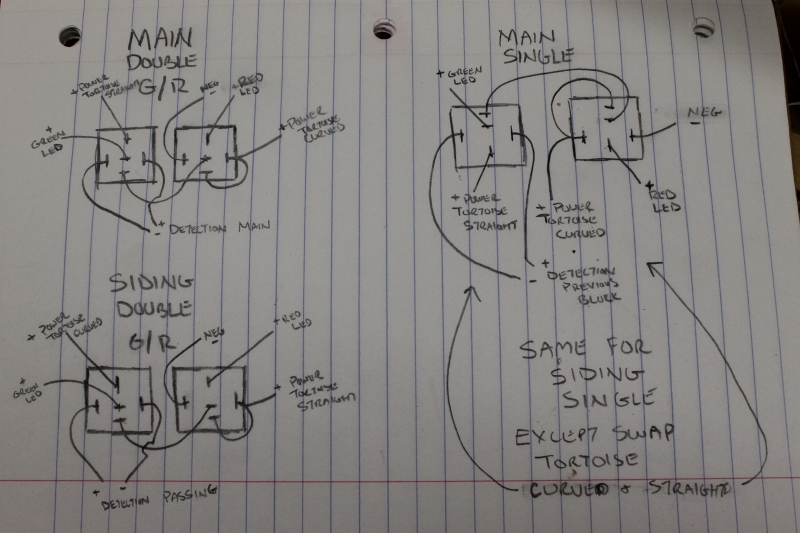 MAIN
DOUBLE
G/R
+ POWER
TORTOISE
STRAIGHT
NEG
-
+ RED
LED
+
GREEN
LED
+ POWER
TORTOISE
CURVED
+
- DETECTION MAIN
SIDING
DOUBLE
G/R
+ POWER
TORTOISE CURVED
NEG
-
+ RED
LED
+
GREEN
LED
+ POWER
TORTOISE
STRAIGHT
+ -
DETECTION PASSING
MAIN
SINGLE
+ GREEN
LED
NEG
-
+ POWER
TORTOISE
STRAIGHT
+ POWER
TORTOISE
CURVED
+ RED
LED
+ DETECTION
- PREVIOUS
BLOCK
SAME FOR
SIDING
SINGLE
EXCEPT SWAP
TORTOISE
CURVED & STRAIGHT